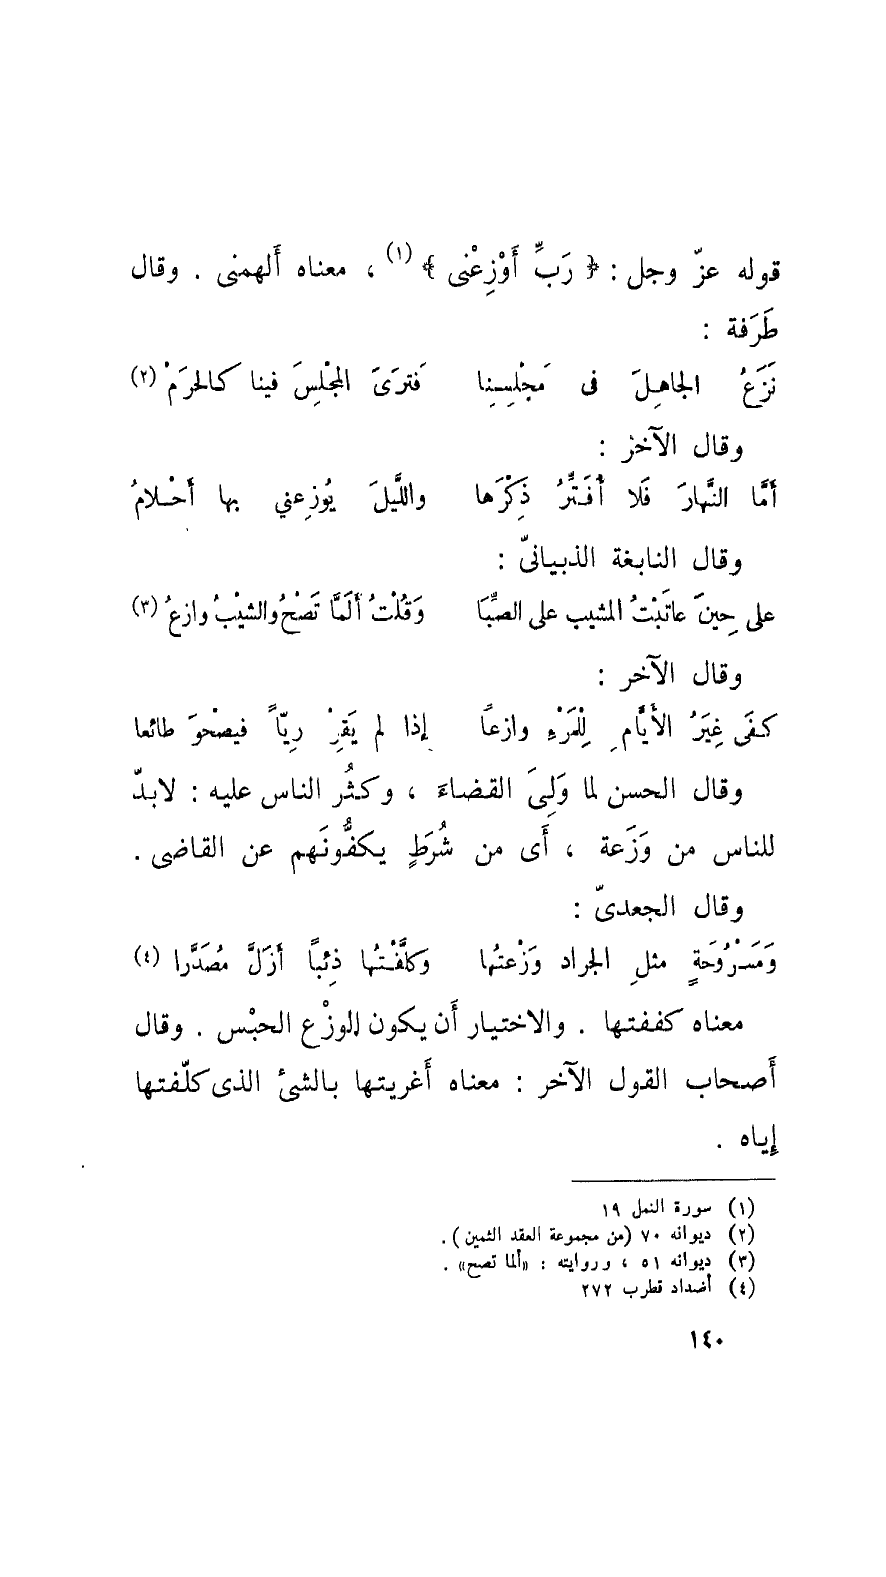 قوله عزّ وجل : ﴿ رَبِّ أَوْزِعْنى ﴾ (١) ، معناه أَلهمنى . وقال
طَرَفة :
نَزَعُ الجاهِلَ فى مَجْلِسِنا فَترَىَ المجْلِسَ فينا كالحرَمْ (٢)
وقال الآخر :
أَمَّا النَّهارَ فَلا أُفَتِّرُ ذِكْرَها واللَّيلَ يُوزِعني بها أَحْلامُ
وقال النابغة الذبيانىّ :
على حِينَ عاتَبْتُ المشيب على الصِّبَا وَقُلْتُ ألَمَّا تَصْحُ والشيْبُ وازعُ (٣)
وقال الآخر :
كفَى غِيَرُ الأَيَّامِ لِلْمَرْءِ وازعاً إذا لم يَقِرْ رِيّاً فيصْحوَ طائعا
وقال الحسن لما وَلِىَ القضاءَ ، وكثُر الناس عليه : لابدّ
للناس من وَزَعة ، أَى من شُرَطٍ يكفُّونَهم عن القاضى .
وقال الجعدىّ :
وَمَسْرُوحَةٍ مثلِ الجراد وَزْعتُها وَكلَّفْتُها ذِئباً أَزَلَّ مُصَدَّرا (٤)
معناه كففتها . والاختيار أَن يكون الوزْع الحبْس . وقال
أَصحاب القول الآخر : معناه أَغريتها بالشئ الذى كلّفتها
إِياه .
(١) سورة النمل ١٩
(٢) ديوانه ٧٠ (من مجموعة العقد الثمين ) .
(٣) ديوانه ٥١ ، وروايته : «ألما تصح» .
(٤) أضداد قطرب ٢٧٢
١٤٠